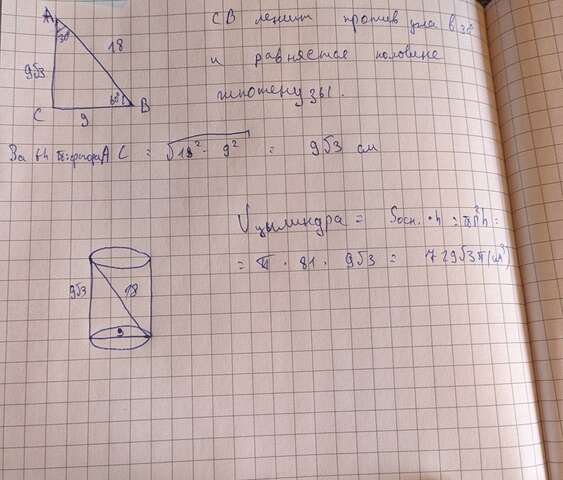 A
30°
18
9√3
60°
C
B
9
CB лежит против угла в 30
и равняется половине
гипотенузы.
За th Пифагора AC = √18² - 9² = 9√3 см
Vцилиндра = Sосн. · h = πR²h =
= π · 81 · 9√3 = 729√3 π (см³)
9√3
18
9